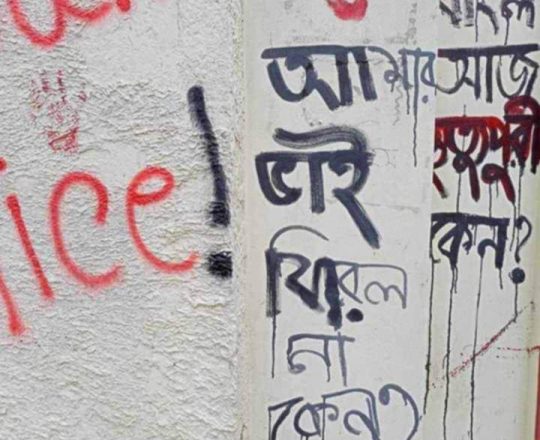 ice!
আমার
ভাই
ফিরল
না
কেন?
আজ
মৃত্যুপুরী
কেন?